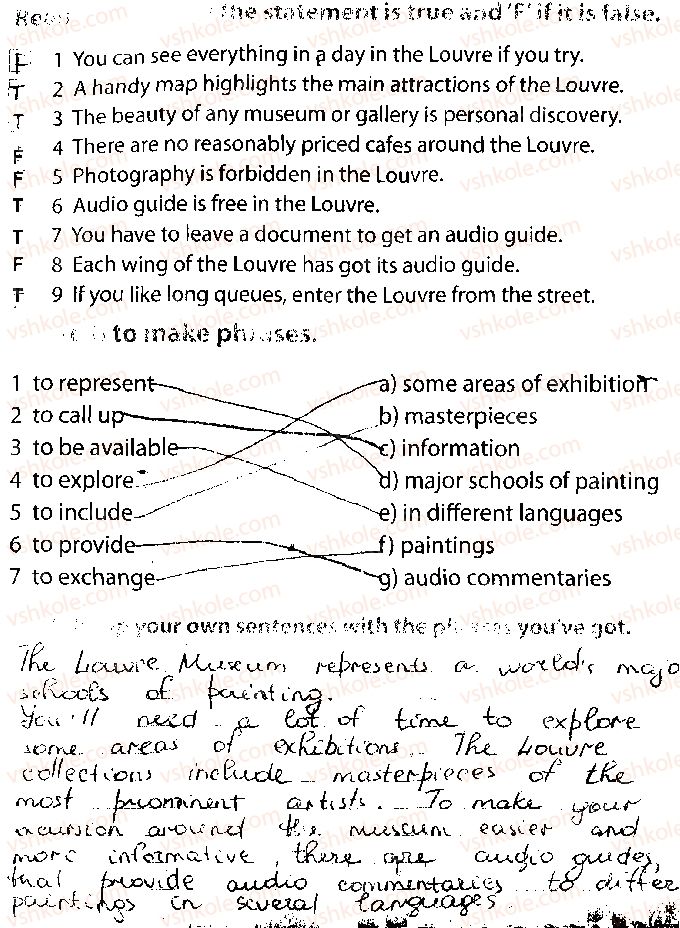 Read the statement is true and 'F' if it is false.
F 1 You can see everything in a day in the Louvre if you try.
T 2 A handy map highlights the main attractions of the Louvre.
T 3 The beauty of any museum or gallery is personal discovery.
F 4 There are no reasonably priced cafes around the Louvre.
F 5 Photography is forbidden in the Louvre.
T 6 Audio guide is free in the Louvre.
T 7 You have to leave a document to get an audio guide.
F 8 Each wing of the Louvre has got its audio guide.
T 9 If you like long queues, enter the Louvre from the street.
to make phrases.
1 to represent a) some areas of exhibition
2 to call up b) masterpieces
3 to be available c) information
4 to explore d) major schools of painting
5 to include e) in different languages
6 to provide f) paintings
7 to exchange g) audio commentaries
your own sentences with the phrases you've got.
The Louvre Museum represents a world's major
schools of painting.
You'll need a lot of time to explore
some areas of exhibitions. The Louvre
collections include masterpieces of the
most prominent artists. To make your
excursion around the museum easier and
more informative, there are audio guides,
that provide audio commentaries to differ
paintings in several languages